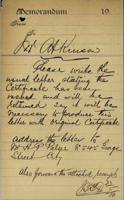 Memorandum 19
From
Mr Atkinson
Please write the
usual letter stating the
Certificate has been
and will be
retained say it will be
necessary to produce this
letter with Original Certificate
Address the letter to
Mr H. P. 245 George
Street City
Also forward the attached